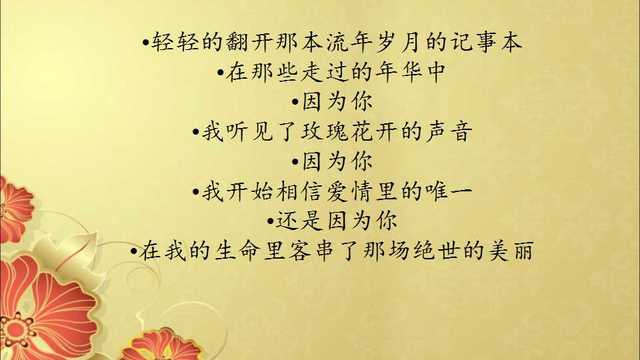 •轻轻的翻开那本流年岁月的记事本
•在那些走过的年华中
•因为你
•我听见了玫瑰花开的声音
•因为你
•我开始相信爱情里的唯一
•还是因为你
•在我的生命里客串了那场绝世的美丽